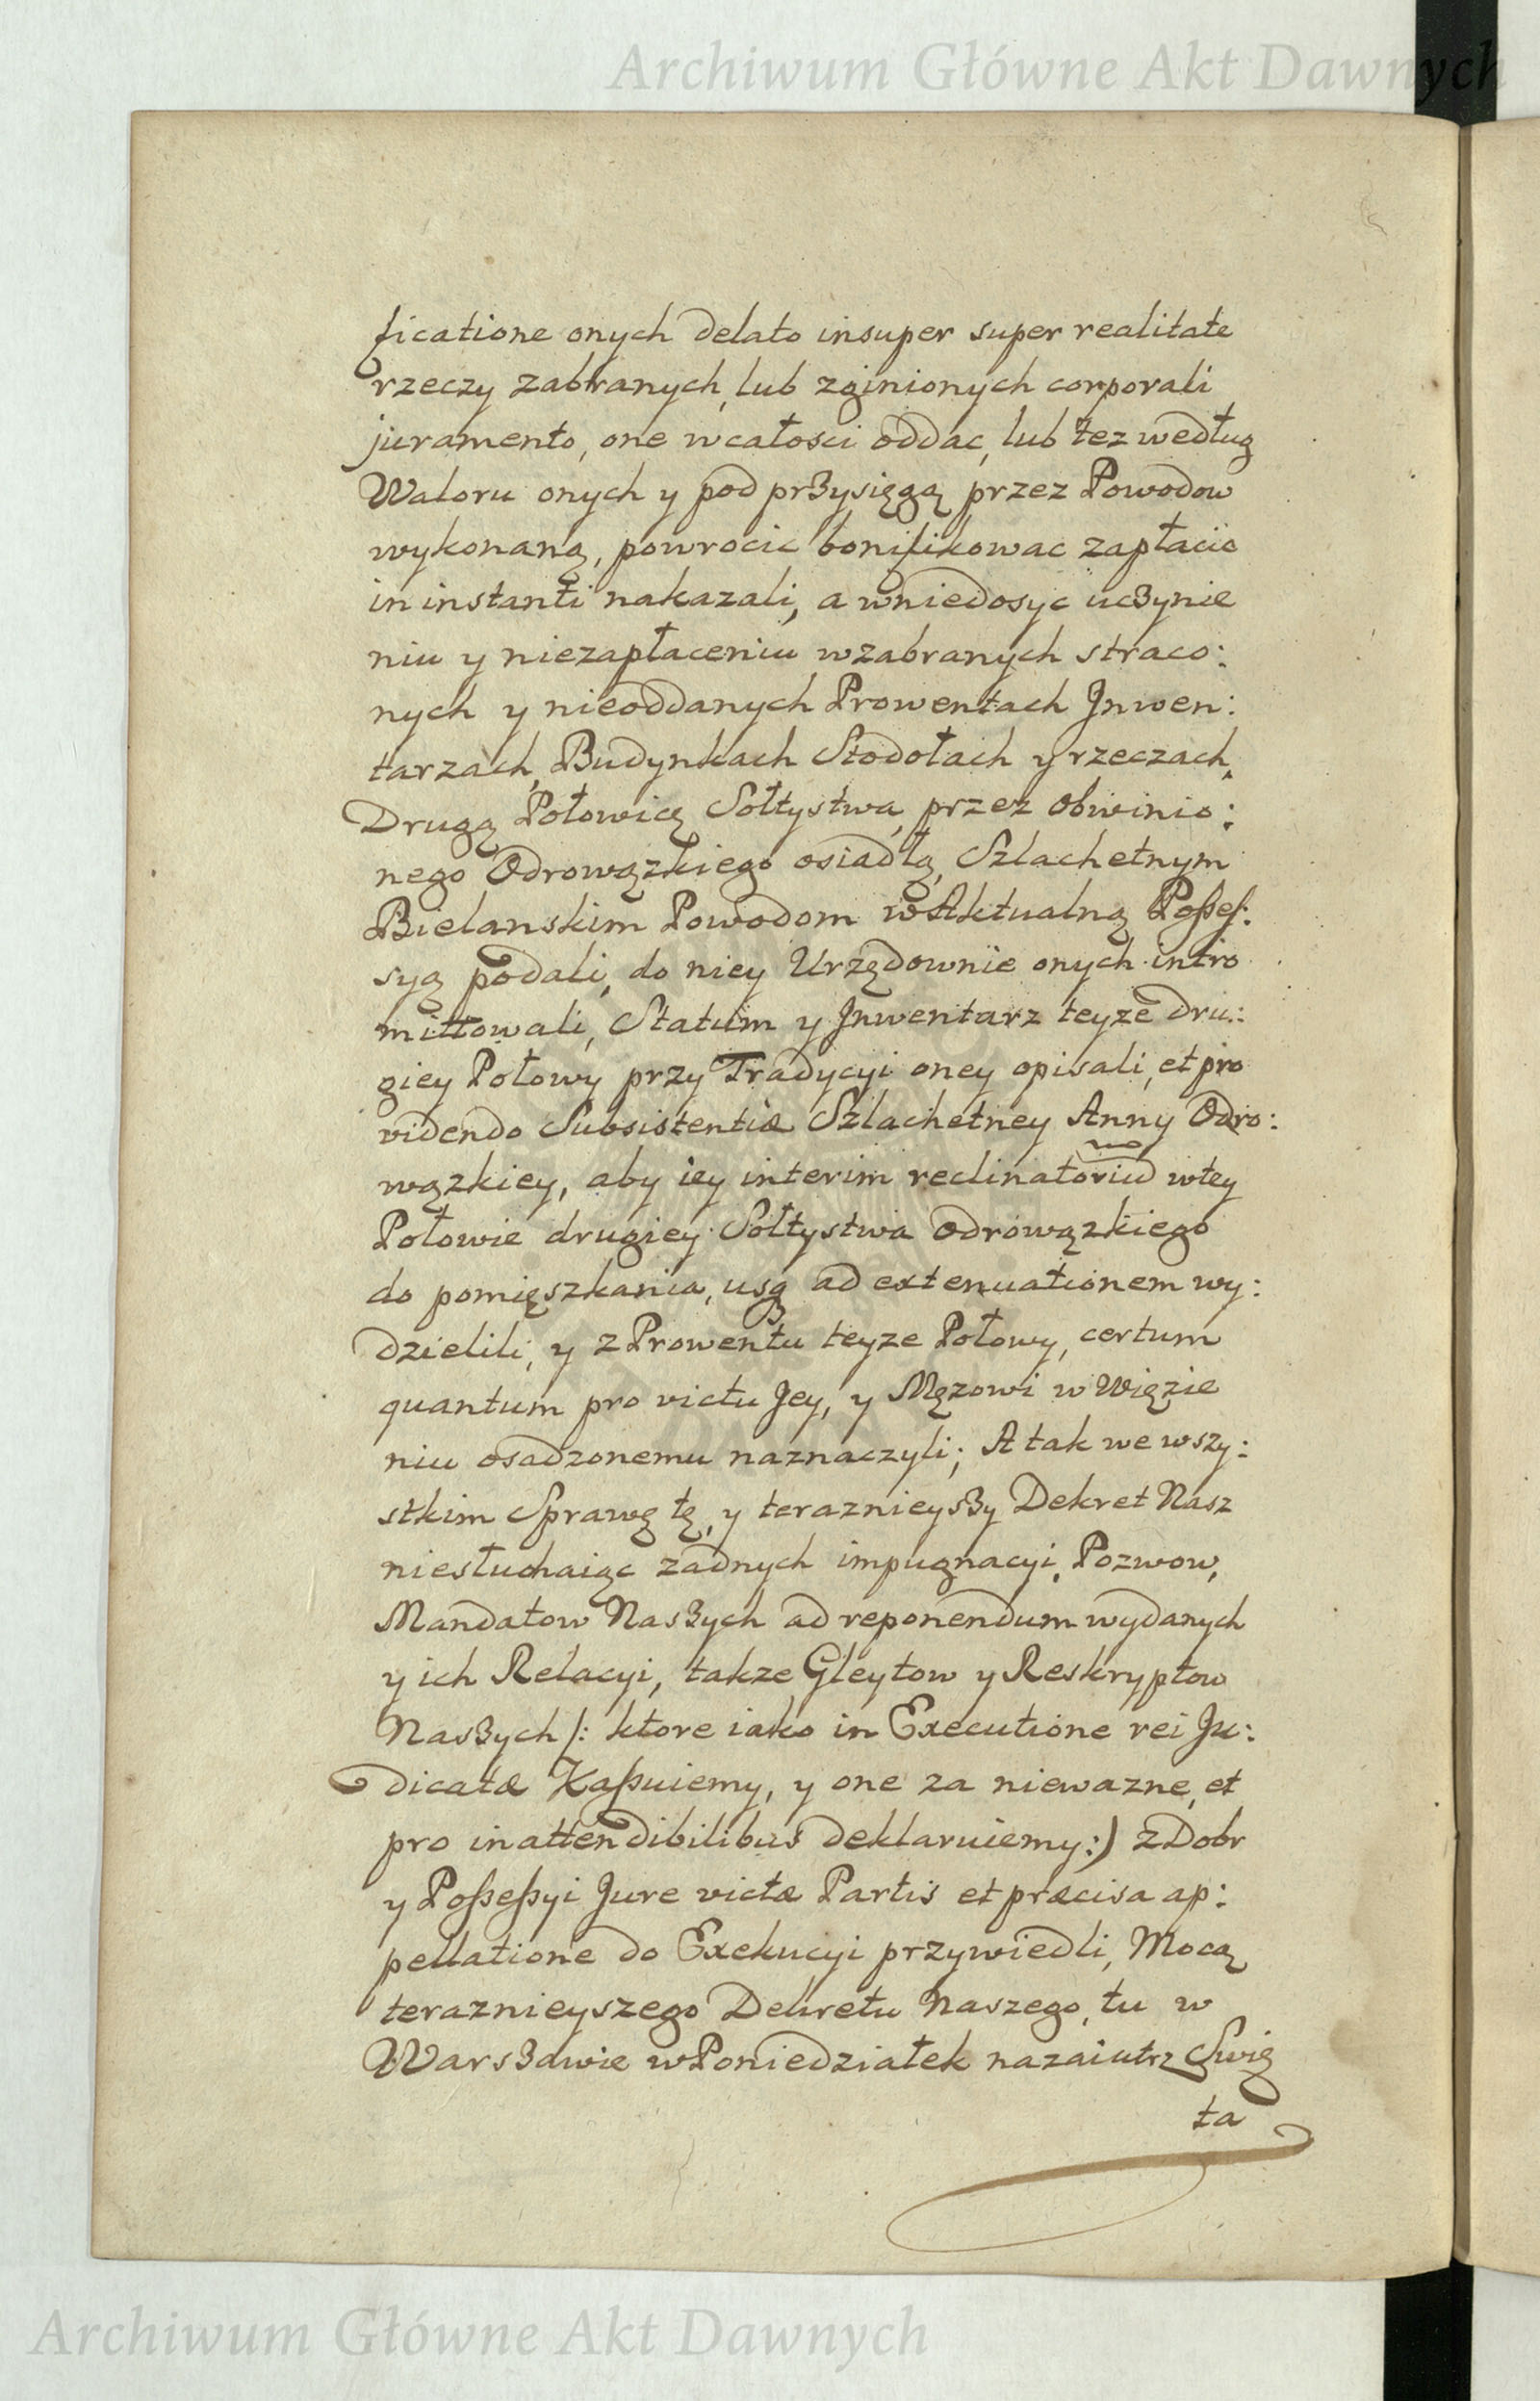 Archiwum Główne Akt Dawnych
ficatione onych delato insuper super realitate
rzeczy zabranych, lub zginionych corporali
juramento, one wcałosci oddac, lub tez według
Waloru onych y pod przysięgą przez Powodow
wykonaną, powrocic bonifikowac zapłacic
in instanti nakazali, a wniedosyc uczynie
niu y niezapłaceniu wzabranych straco:
nych y nieoddanych Prowentach Jnwen:
tarzach, Budynkach Stodołach y rzeczach,
Drugą Połowicę Sołtystwa, przez Obwinio:
nego Odrowązkiego osiadłą, Szlachetnym
Bielanskim Powodom w Aktualną Poßeß:
syą podali, do niey Urzędownie onych intro
mittowali, Statum y Jnwentarz teyze dru:
giey Połowy przy Tradycyi oney opisali, et pro
videndo Subsistentiæ Szlachetney Anny Odro:
wązkiey, aby iey interim reclinatoriu wtey
Połowie drugiey Sołtystwa Odrowązkiego
do pomięszkania, usq ad extenuationem wy:
dzielili, y z Prowentu teyze Połowy, certum
quantum pro victu Jey, y Męzowi w Więzie
niu osadzonemu naznaczyli; A tak we wszy:
stkim Sprawę tę, y teraznieyszy Dekret Nasz
niesłuchaiąc zadnych impugnacyi, Pozwow,
Mandatow Naszych ad reponendum wydanych
y ich Relacyi, takze Gleytow y Reskryptow
Naszych /: ktore iako in Executione rei Ju:
dicatæ Kaßuiemy, y one za niewazne, et
pro inattendibilibus deklaruiemy:) z Dobr
y Poßeßyi Jure victæ Partis et præcisa ap:
pellatione do Exekucyi przywiedli, Mocą
teraznieyszego Dekretu Naszego, tu w
Warszawie wPoniedziałek nazaiutrz Swię
ta
Archiwum Główne Akt Dawnych